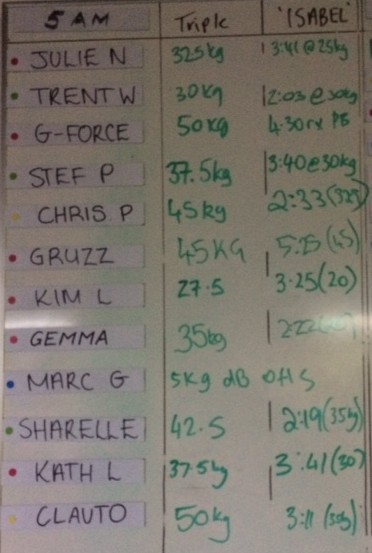 5 AM Triple 'ISABEL'
JULIE N 32.5kg 13:41 @ 25kg
TRENT W 30kg 12:03 @ 30kg
G-FORCE 50kg 4:30 rx PB
STEF P 37.5kg 13:40 @ 30kg
CHRIS. P 45kg 2:33 (32.5)
GRUZZ 45KG 5:25 (45)
KIM L 27.5 3:25 (20)
GEMMA 35kg
MARC G 5kg dB OHS
SHARELLE 42.5 2:19 (35kg)
KATH L 37.5kg 3:41 (30)
CLAUTO 50kg 3:11